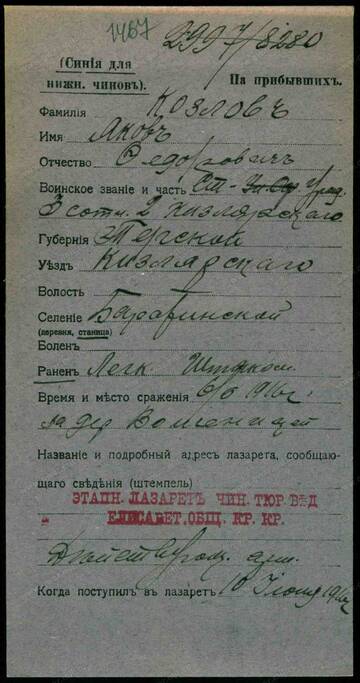 1467
2997/8280
(Синія для нижн. чиновъ).
На прибывшихъ.
Фамилія Козловъ
Имя Яковъ
Отчество Федоровичъ
Воинское званіе и часть Ст. Уряд.
3 сотн. 2 Кизлярскаго
Губернія Терской
Уѣздъ Кизлярскаго
Волость
Селеніе
(деревня, станица)
Боленъ
Раненъ Легк. Штыком
Время и мѣсто сраженія 6/6 1916 г.
за дер
Названіе и подробный адресъ лазарета, сообщаю-
щаго свѣдѣнія (штемпель)
ЭТАПН. ЛАЗАРЕТЪ ЧИН. ТЮР. ВѢД
ЕЛИСАВЕТ. ОБЩ. КР. КР.
Когда поступилъ въ лазаретъ 10 Іюня 1916